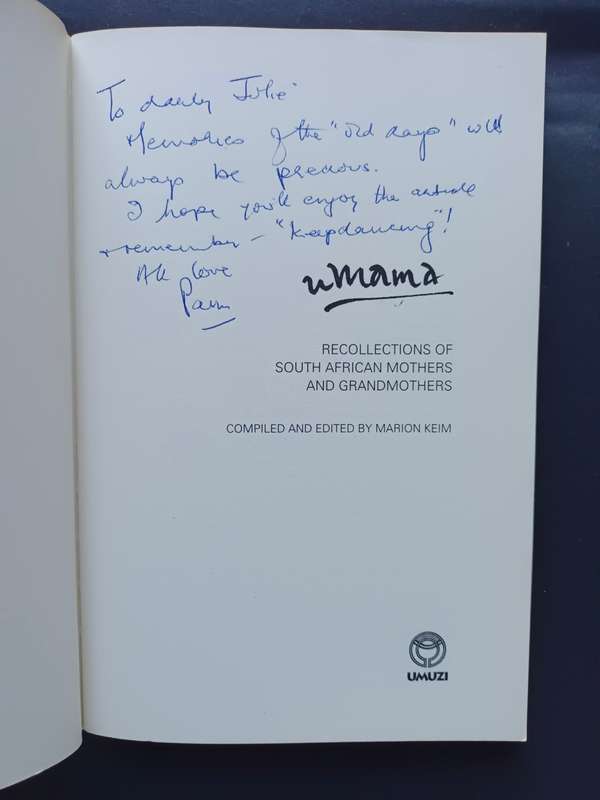 To darling Julie
Memories of the "old days" will
always be precious.
I hope you'll enjoy the article
+ remember – "keep dancing"!
All love
Pam
umama
RECOLLECTIONS OF
SOUTH AFRICAN MOTHERS
AND GRANDMOTHERS
COMPILED AND EDITED BY MARION KEIM
UMUZI